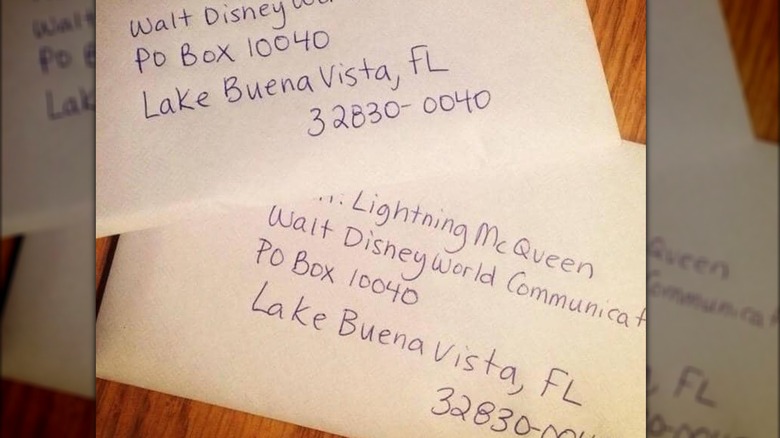 Walt Disney
PO Box 10040
Lake Buena Vista, FL
32830-0040
Lightning McQueen
Walt Disney World Communicat
PO Box 10040
Lake Buena Vista, FL
32830-004